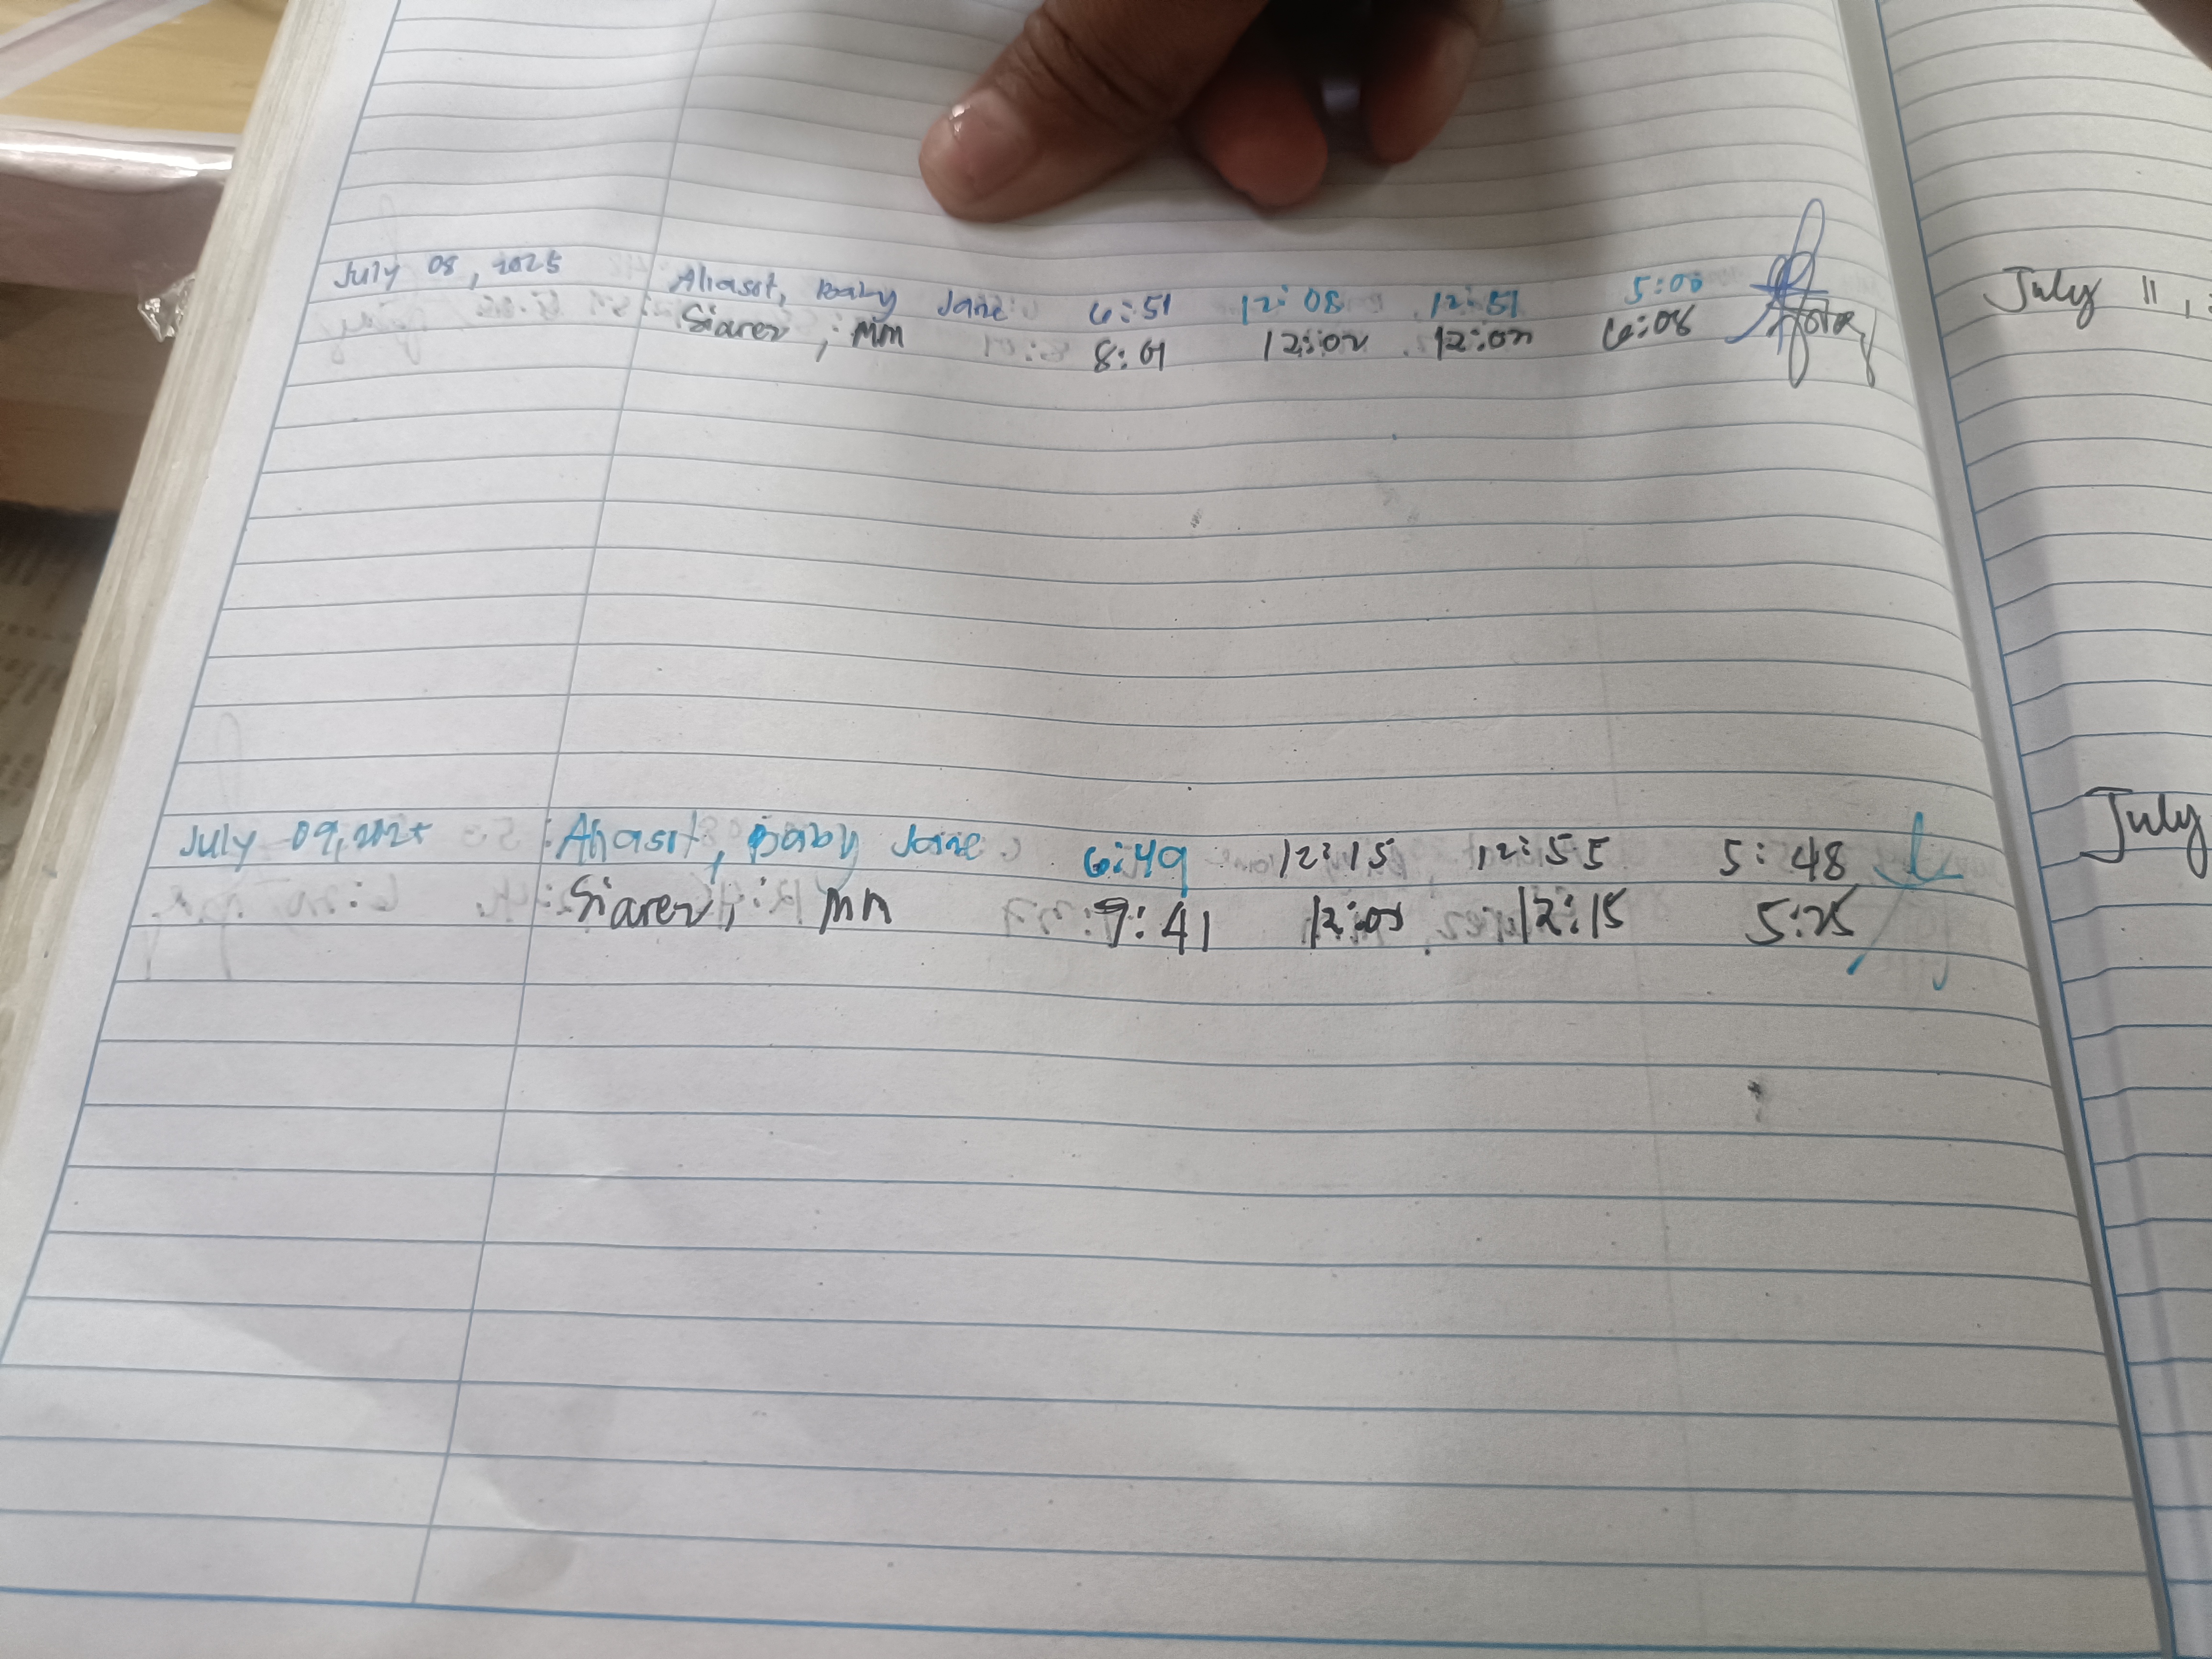 July 08, 2025 Ahasot, Baby Jane 6:51 12:08 12:51 5:00
Siarez, MM 8:01 12:02 12:02 6:08
July 09, 2025 Ahasot, Baby Jane 6:49 12:15 12:55 5:48
Siarez, MM 7:41 12:05 12:15 5:25
July 11,
July